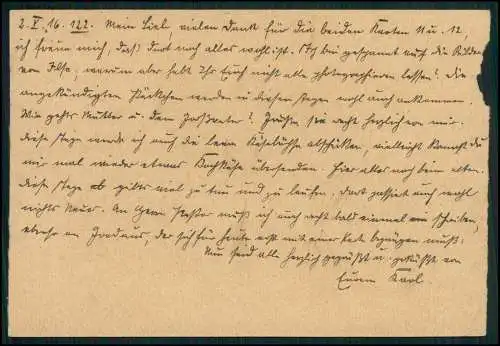 2. V. 16. 122. Mein Lieb, vielen Dank für die beiden Karten 11 u. 12,
ich freue mich, daß dort noch alles wohl ist. Ich bin gespannt auf die Bilder
von Ilse, warum aber habt Ihr Euch nicht alle photographieren lassen? Die
angekündigten Päckchen werden in diesen Tagen wohl auch ankommen.
Wie gehts Mutter u. dem Großvater? Grüße sie recht herzlich von mir.
Diese Tage werde ich auch die leere Käsbüchse abschicken, vielleicht kannst du
mir mal wieder etwas Kochkäse übersenden. Hier alles noch beim alten.
Diese Tage gibts viel zu tun und zu laufen. Dort passiert auch wohl
nichts Neues. An Herrn muß ich auch recht bald einmal schreiben,
ebenso an, der sich für heute erst mit einer Karte begnügen muß.
Nun seid alle herzlich gegrüßt u. geküßt von
Eurem Karl.